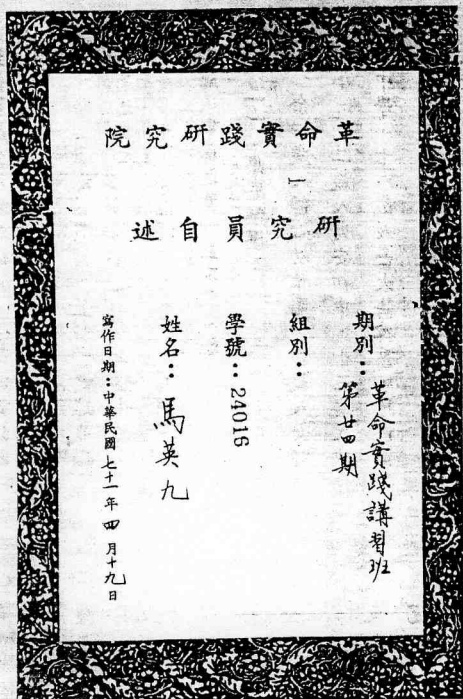 革命實踐研究院
研究員自述
期別：革命實踐講習班
第廿四期
組別：
學號：24016
姓名：馬英九
寫作日期：中華民國七十一年四月十九日